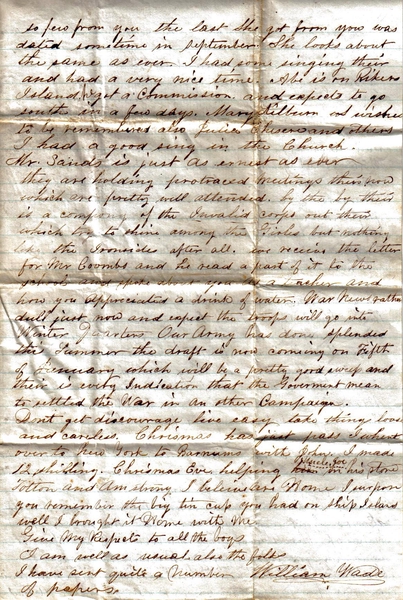 so few from you the last she got from you was
dated sometime in September. She looks about
the same as ever I had some singing there
and had a very nice time. Abe is on Rikers
Island, got a Commission and expects to go
south in a few days. Mary Kilburn wishes
to be remembered also Julia and others
I had a good sing in the Church.
Mr. Sands is just as ernest as ever
they are holding protraced meetings there now
which are pretty well attended. by the by their
is a company of the Invalid corps out their
which try to shine among the Girls but nothing
like the Ironsides after all. we receive the letter
for Mr Coombs and he read a part of it to the
school and spoke about you as a Teacher and
how you appreciated a drink of water. War News rather
dull just now and expect the troops will go into
Winter Quarters. Our Army has done splended
this Summer the draft is now coming on Fifth
of January which will be a pretty good sweep and
their is evry Indication that the Goverment mean
to settled the War in an other Campaign.
Dont get discourage live easy take thing loose
and careless. Chrismas has just pass I went
over to New York to Barnums with John. I made
12 shilling Chrismas Eve helping on his store
Totton and Armstrong. I believe are Home. I surpose
you remember the big tin cup you had on Ship Island
well I brought it Home with Me.
Give My Respects to all the boys
I am well as usual also the folks
I have sent quite a number William Wade
of papers.